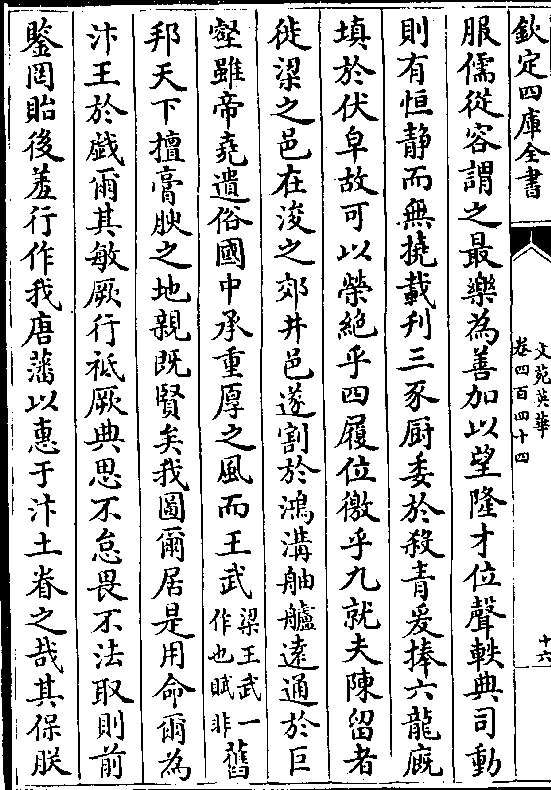 欽定四庫全書
文苑英華
卷四百四十四
十六
服儒從容謂之最樂為善加以望隆才位聲軼典司動
則有恒静而無撓載刊三豕厨委於殺青爰捧六龍廐
填於伏皁故可以榮絶乎四履位徼乎九就夫陳留者
徙梁之邑在浚之郊井邑遂割於鴻溝舳艫遠通於巨
壑雖帝堯遺俗國中承重厚之風而王武梁王武一作也賦非舊
邦天下擅膏腴之地親既賢矣我圖爾居是用命爾為
汴王於戯爾其敏厥行祗厥典思不怠畏不法取則前
鑒罔貽後羞行作我唐藩以惠于汴土眷之哉其保朕